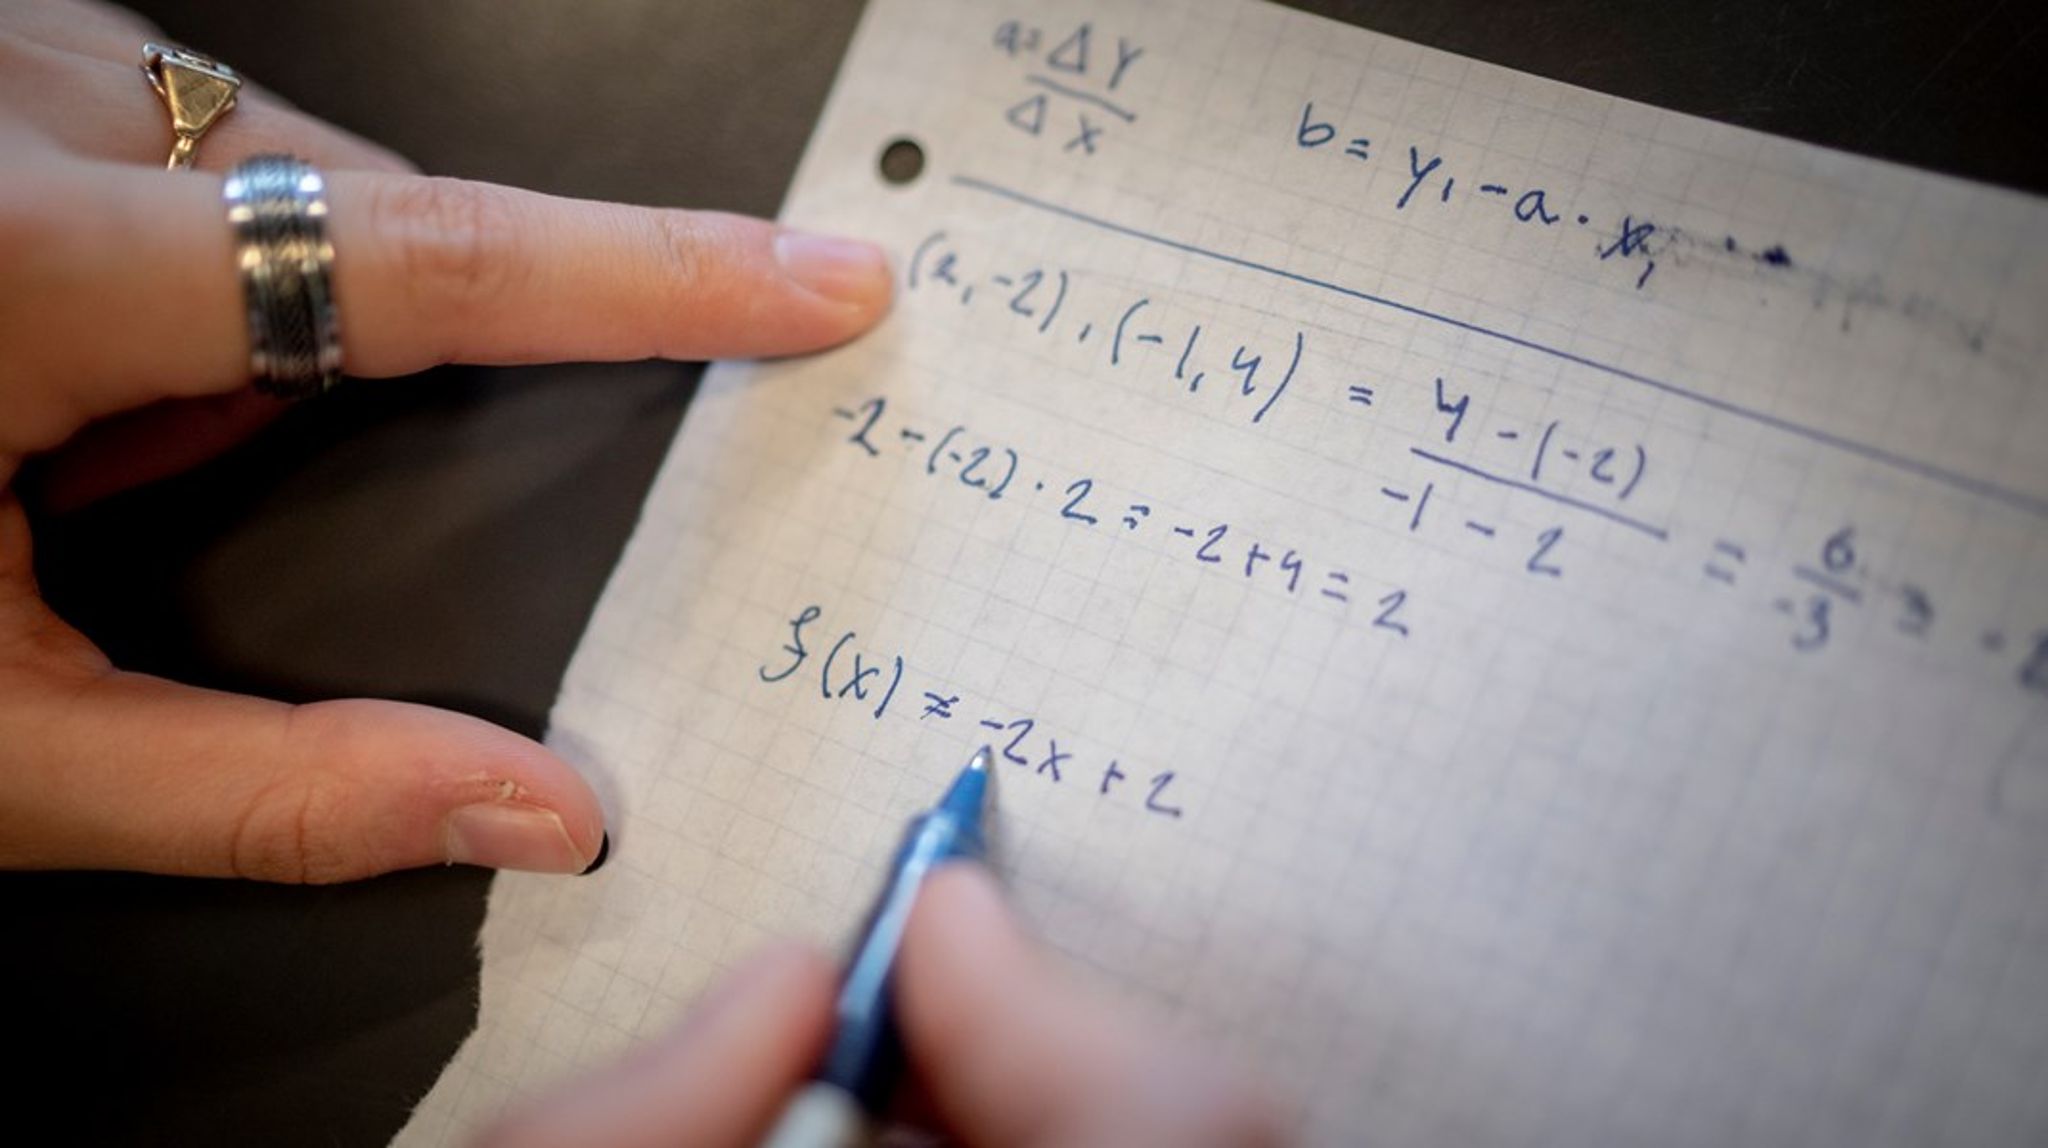 a = ΔY / ΔX   b = y₁ - a · x₁
(2, -2), (-1, 4) = 4 - (-2) / -1 - 2 = 6 / -3 = -2
-2 - (-2) · 2 = -2 + 4 = 2
f(x) = -2x + 2